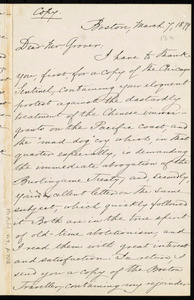 Copy.
Boston, March 7, 1879
Dear Mr. Grover,
I have to thank
you, first for a copy of the Chicago
Sentinel, containing your eloquent
protest against the dastardly
treatment of the Chinese immi-
grants on the Pacific Coast, and
the "mad dog" cry which in that
quarter especially, is demanding
the immediate abrogation of the
Burlingame Treaty; and, secondly
your excellent letter on the same
subject, which quickly followed
it. Both are in the true spirit
of old-time abolitionism, and
I read them with great interest
and satisfaction. In return I
send you a copy of the Boston
Traveller, containing my rejoinder